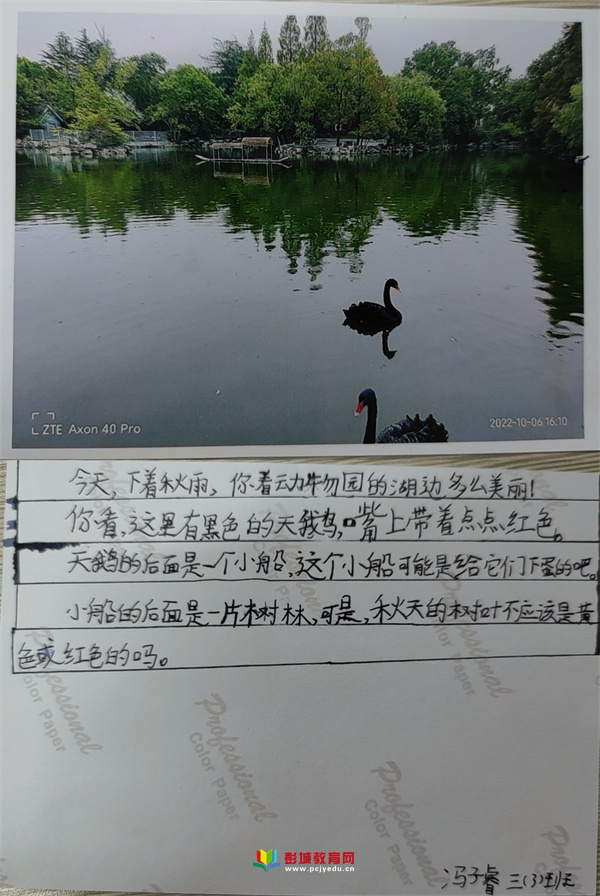 ZTE Axon 40 Pro
2022-10-06 16:10
今天，下着秋雨，你看动物园的湖边多么美丽！
你看，这里有黑色的天鹅，嘴上带着点点红色。
天鹅的后面是一个小船，这个小船可能是给它们下蛋的吧。
小船的后面是一片树林，可是，秋天的树叶不应该是黄
色或红色的吗。
Professional
Color Paper
Professional
Color Paper
Professional
Color Paper
彭城教育网
www.pcjyedu.cn
冯子睿 三（3）班